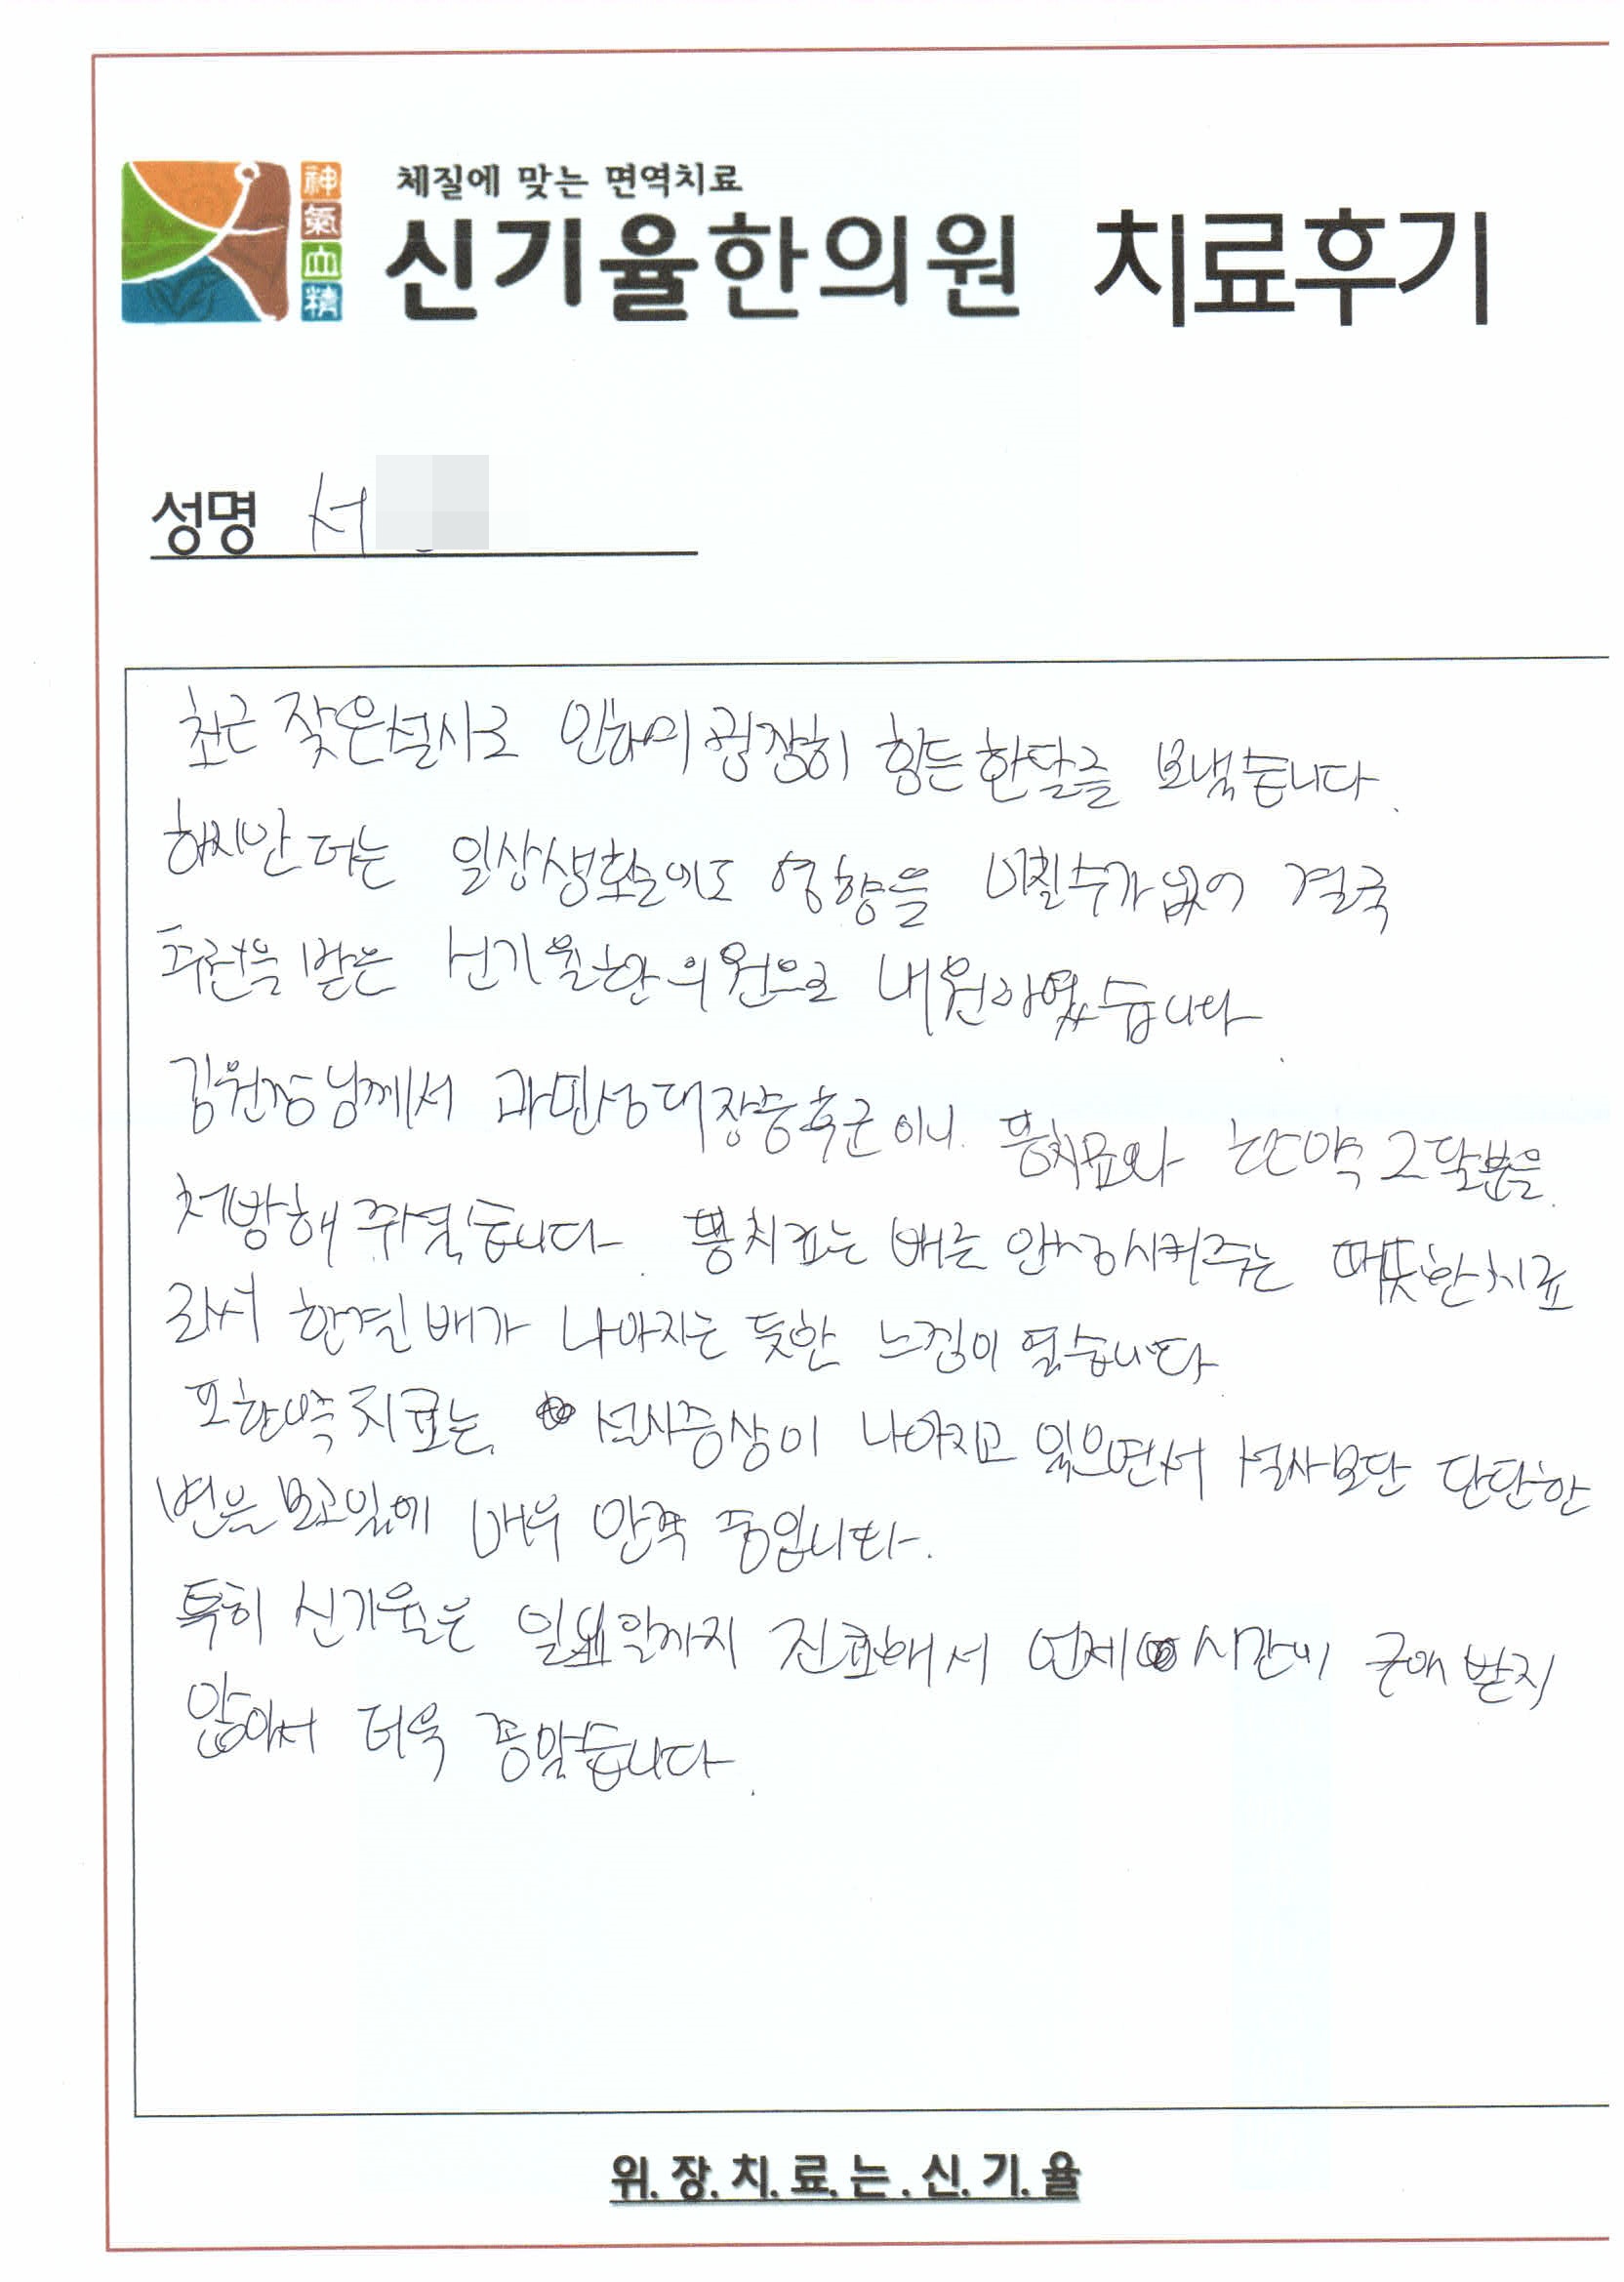 체질에 맞는 면역치료
神氣血精
신기율한의원 치료후기
성명 서
최근 잦은설사로 인해 굉장히 힘든 한달을 보냈습니다.
하지만 더는 일상생활에도 영향을 미칠수가 없어 결국
추천을 받은 신기율한의원으로 내원하였습니다.
김원장님께서 과민성대장증후군이니 뜸치료와 한약 2달분을
처방해 주셨습니다. 뜸치료는 배를 안정시켜주는 따뜻한치료
라서 한결 배가 나아지는 듯한 느낌이 였습니다
또한약 치료는, 설사증상이 나아지고 있으면서 설사보단 단단한
변을 보고있에 매우 만족 중입니다.
특히 신기율은 일요일까지 진료해서 언제 시간에 구애 받지
않아서 더욱 좋았습니다.
위.장.치.료.는.신.기.율